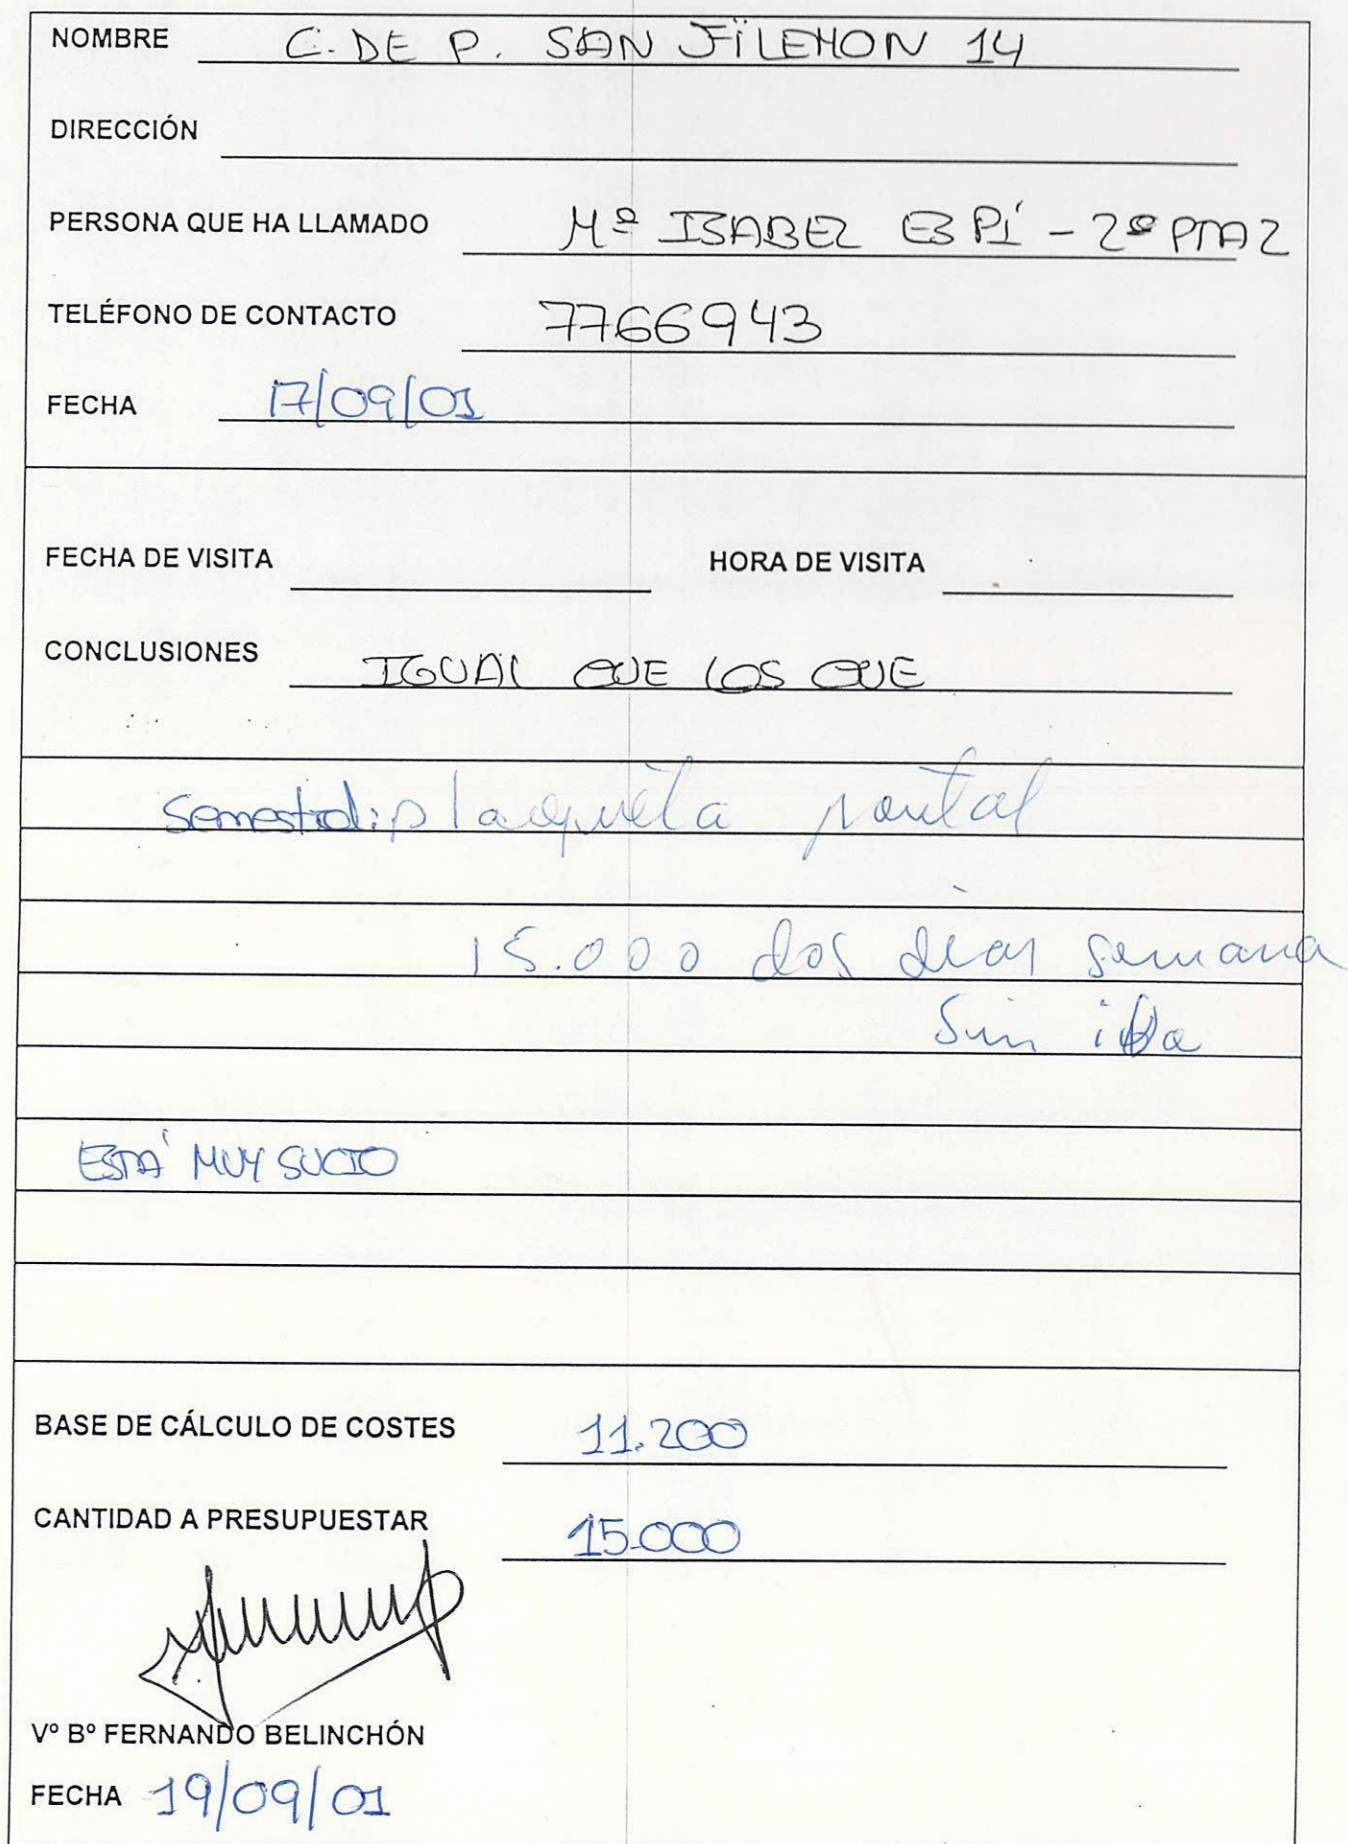 NOMBRE C. DE P. SAN FILEMON 14
DIRECCIÓN
PERSONA QUE HA LLAMADO Mª ISABEL ESPÍ - 2º PTA 2
TELÉFONO DE CONTACTO 7766943
FECHA 17/09/01
FECHA DE VISITA HORA DE VISITA
CONCLUSIONES IGUAL QUE LOS QUE
semestral: plaqueta portal
15.000 dos dias semana
Sin
ESTÁ MUY SUCIO
BASE DE CÁLCULO DE COSTES 11.200
CANTIDAD A PRESUPUESTAR 15.000
Vº Bº FERNANDO BELINCHÓN
FECHA 19/09/01